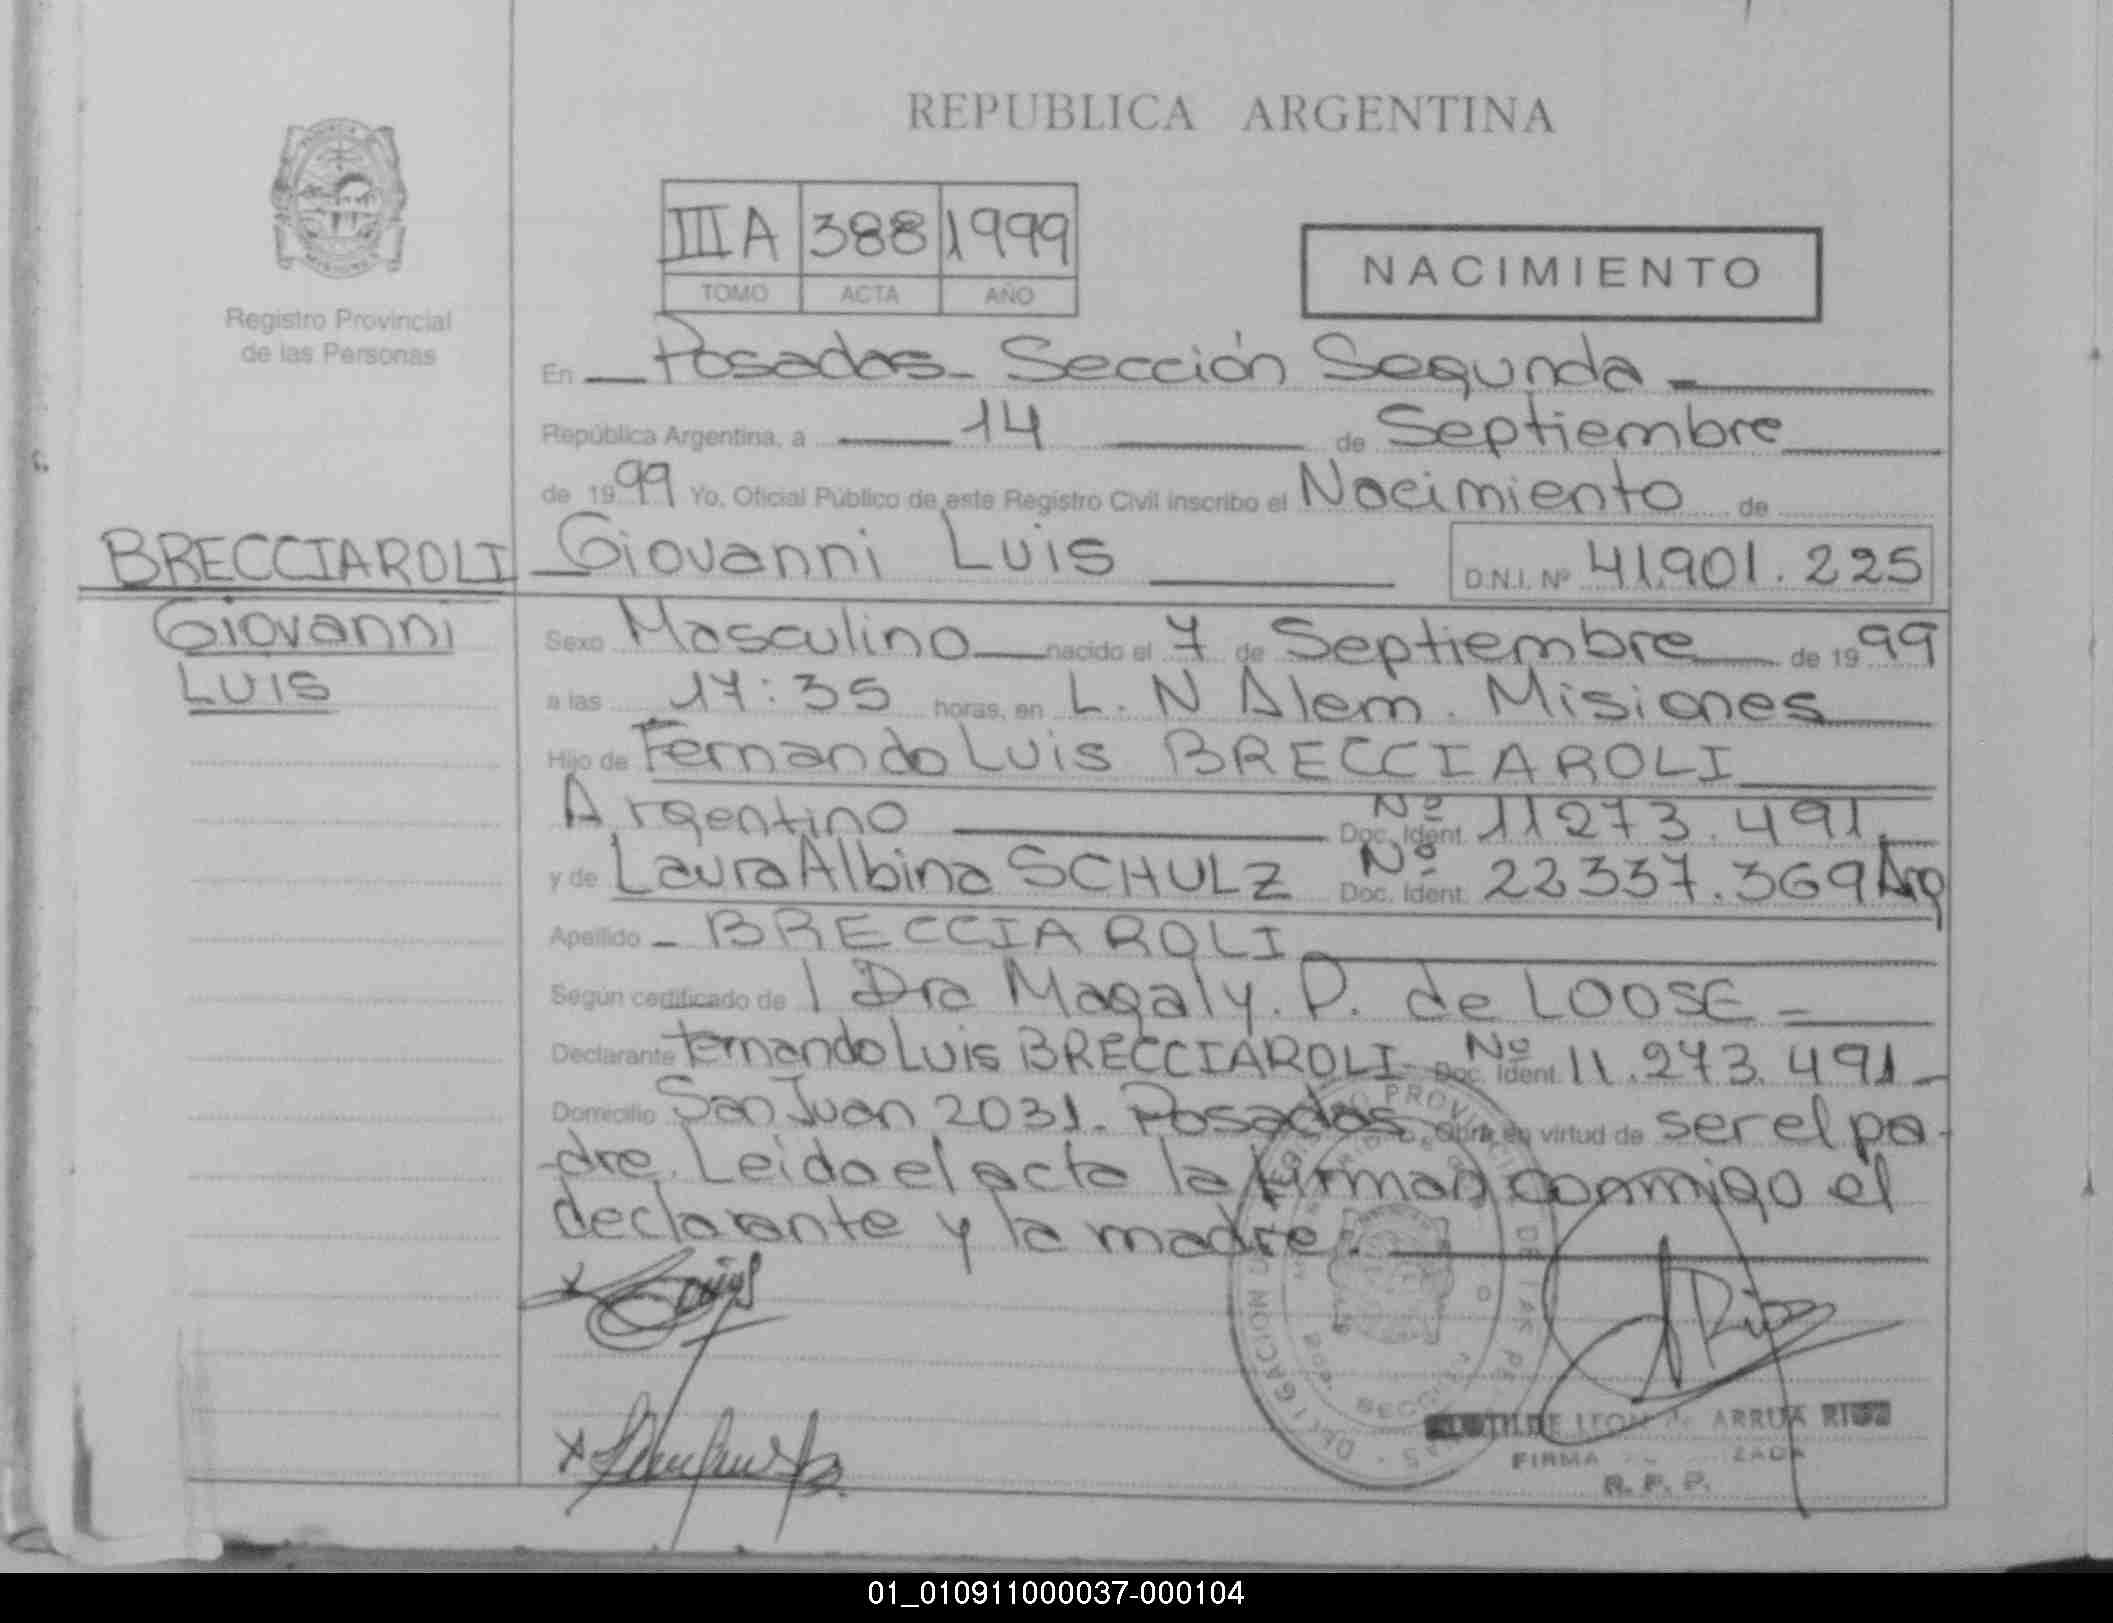 REPUBLICA ARGENTINA
III A 388 1999
TOMO ACTA AÑO
NACIMIENTO
Registro Provincial
de las Personas
En Posadas - Sección Segunda
República Argentina, a 14 de Septiembre
de 1999 Yo, Oficial Público de este Registro Civil inscribo el Nacimiento de
BRECCIAROLI Giovanni Luis D.N.I. Nº 41.901.225
Giovanni
Luis
Sexo Masculino nacido el 7 de Septiembre de 1999
a las 17:35 horas, en L. N Alem. Misiones
Hijo de Fernando Luis BRECCIAROLI
Argentino Nº Doc. Ident. 11273.491
y de Laura Albina SCHULZ Nº Doc. Ident. 22337.369 Arg
Apellido - BRECCIAROLI
Según certificado de Dra Magaly. P. de LOOSE -
Declarante Fernando Luis BRECCIAROLI Nº Doc. Ident. 11.273.491 -
Domicilio San Juan 2031. Posadas Obra en virtud de ser el pa-
dre. Leida el acta la firman conmigo el
declarante y la madre.
ARRUA RIOS
FIRMA
R. P. P.
01_010911000037-000104